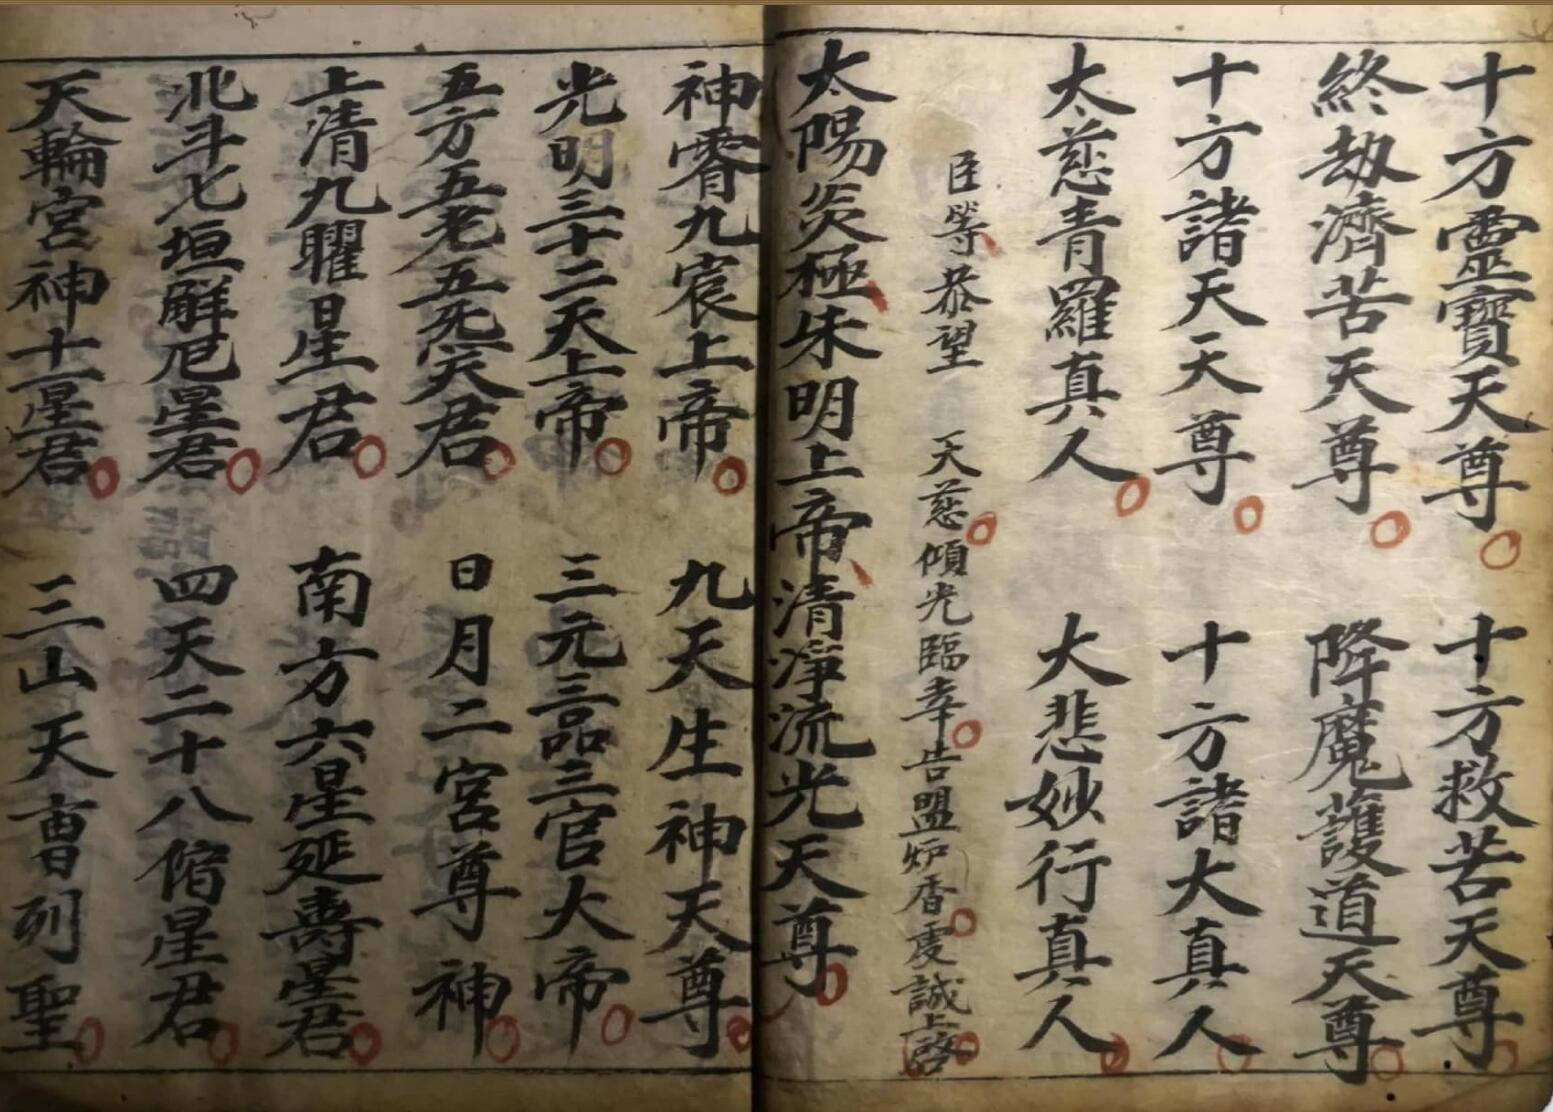 十方靈寶天尊 十方救苦天尊
終劫濟苦天尊 降魔護道天尊
十方諸天天尊 十方諸大真人
太慈青羅真人 大悲妙行真人
臣等恭望 天慈傾光臨幸告盟炉香虔誠上啓
太陽炎極朱明上帝清淨流光天尊
神霄九宸上帝 九天生神天尊
光明三十二天上帝 三元三品三官大帝
五方五老五死天君 日月二宮尊神
上清九曜星君 南方六星延壽星君
北斗七垣解厄星君 四天二十八俻星君
天輪宮神十一星君 三山天曹列聖